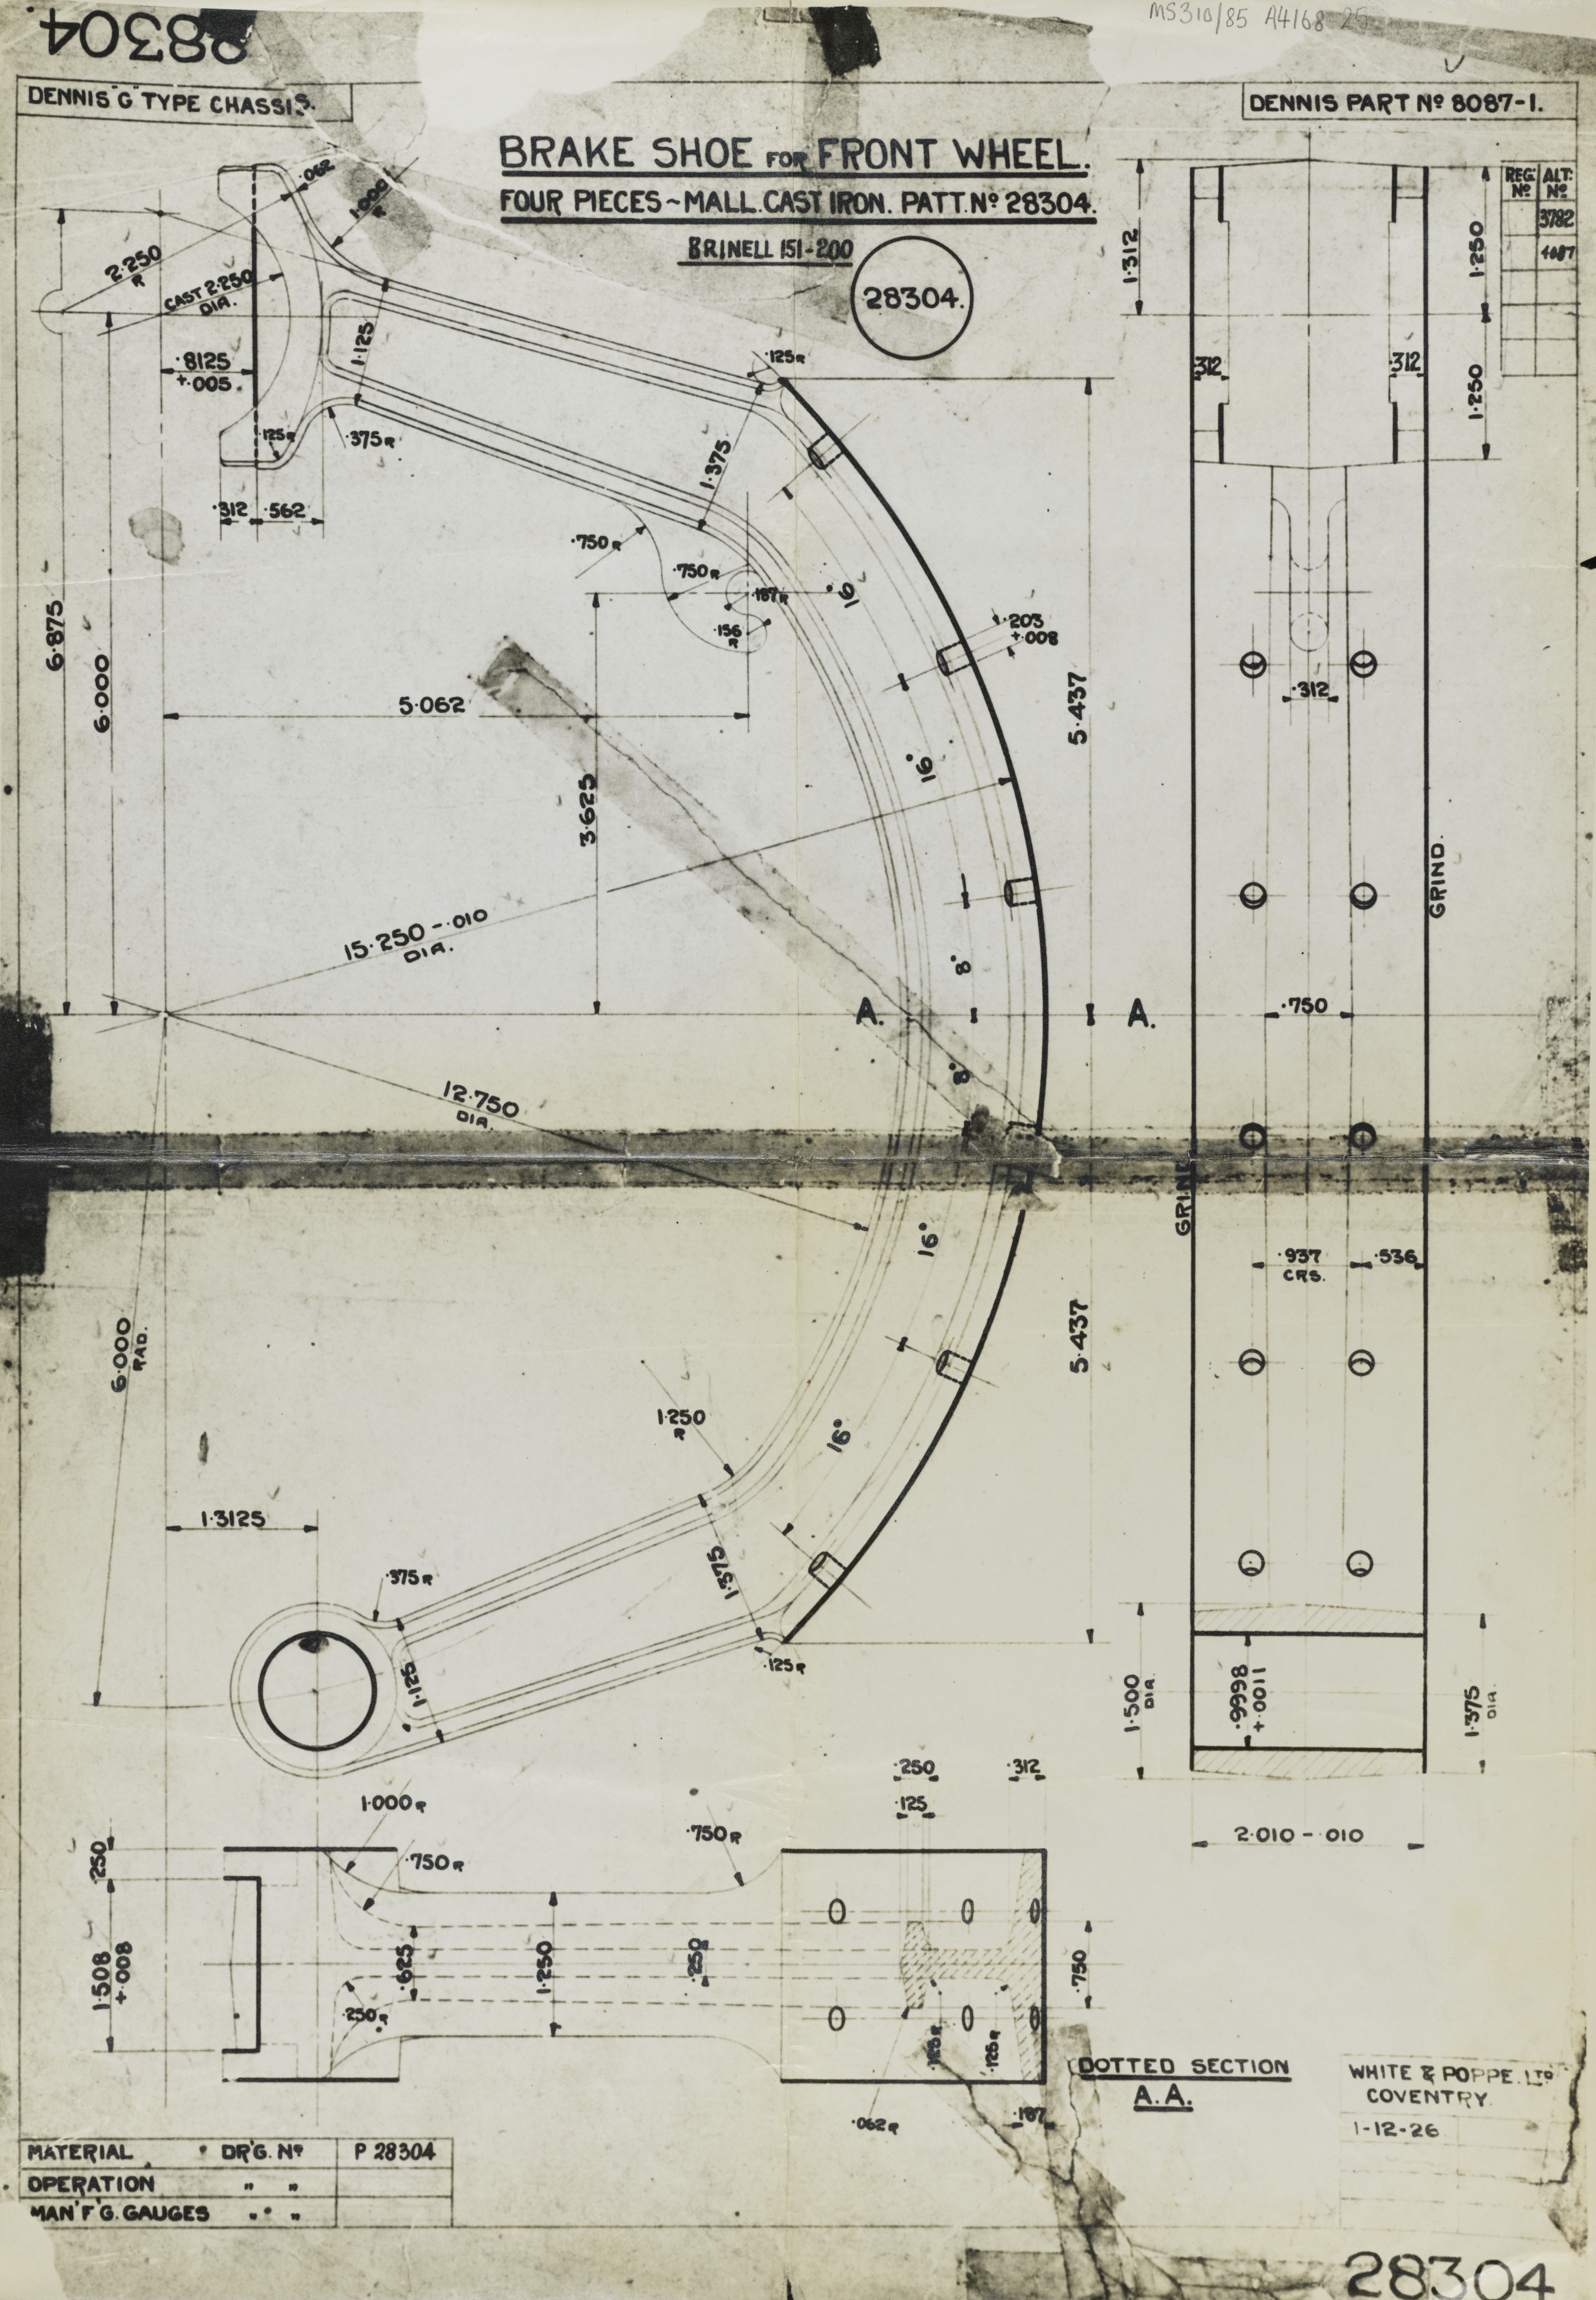 28304
MS310/85 A4168 25
DENNIS "G" TYPE CHASSIS.
DENNIS PART Nº 8087-1.
BRAKE SHOE FOR FRONT WHEEL.
FOUR PIECES~MALL.CAST IRON. PATT.Nº 28304.
BRINELL 151-200
28304.
REG. Nº
ALT: Nº
3782
4087
.062
1.000 R
2.250 R
CAST 2.250 DIA.
.8125 +.005.
1.125
.125 R
.375 R
.312
.562
.125 R
1.375
.750 R
.750 R
.187 R
.156 R
16°
.203 +.008
6.875
6.000
5.062
3.625
5.437
16°
15.250 -.010 DIA.
8°
A.
A.
8°
12.750 DIA.
16°
5.437
6.000 RAD.
1.250 R
16°
1.3125
.375 R
1.375
1.125
.125 R
1.312
1.250
.312
.312
1.250
.312
GRIND.
.750
GRIND
.937 CRS.
.536
1.500 DIA.
.9998 +.0011
1.375 DIA.
2.010 -.010
.250
.312
.125
1.000 R
.750 R
.750 R
.250
1.508 +.008
.625
1.250
.250
.750
.250 R
.125 R
.125 R
.062 R
.187
DOTTED SECTION
A.A.
WHITE & POPPE. LTD
COVENTRY.
1-12-26
MATERIAL DR'G. Nº P 28304
OPERATION " "
MAN'F'G. GAUGES " "
28304